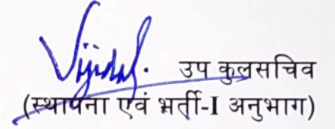 उप कुलसचिव
(स्थापना एवं भर्ती-I अनुभाग)